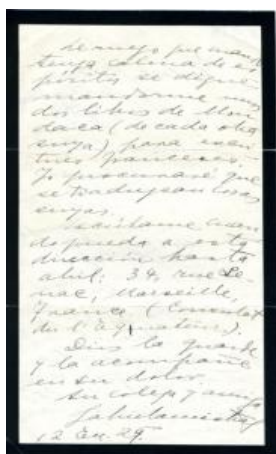 Le ruego que cuando
tenga calma de es-
píritu se digne
mandarme unos
dos libros de Mon
daca (de cada obra
suya) para escri
tores franceses.
Yo procuraré que
se traduzcan cosas
suyas.
Escríbame cuan
do pueda a esta
dirección hasta
abril: 34, rue Se-
nac, Marseille,
France. (Consulat
de l'Equateur).
Dios la guarde
y la acompañe
en su dolor.
Su colega y amiga
Gabriela Mistral
12 En. 29.